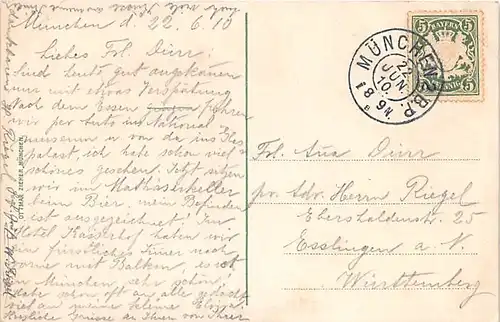 München d. 22.6.10
Liebes Frl. Dürr!
Sind heute gut angekommen
nur mit etwas Verspätung
Nach dem Essen fahren
wir per Auto ins National
museum u. von da ins Glas
palast, ich habe schon viel
schönes gesehen. Jetzt sitzen
wir im Mathäserkeller
beim Bier, mein Befinden
ist ausgezeichnet! Im
Hotel Kaiserhof haben wir
ein fürstliches Zimer nach
vorne mit Balkon, es ist
in München sehr schön,
viel an meine kleine
Herzliche Grüsse an Ihnen von Ihrer
OTTMAR ZIEHER, MÜNCHEN.
BAYERN
5 5
MÜNCHEN 2 B.P.
22
JUN.
10.
8-9N
Frl. Dürr
pr. Adr. Herrn Riegel
Ebershaldenstr. 25
Esslingen a. N.
Württemberg